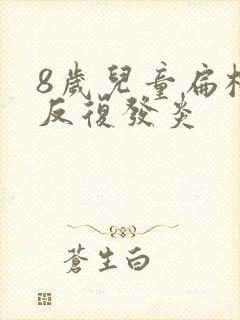 8歲兒童扁
反復發炎
蒼生白